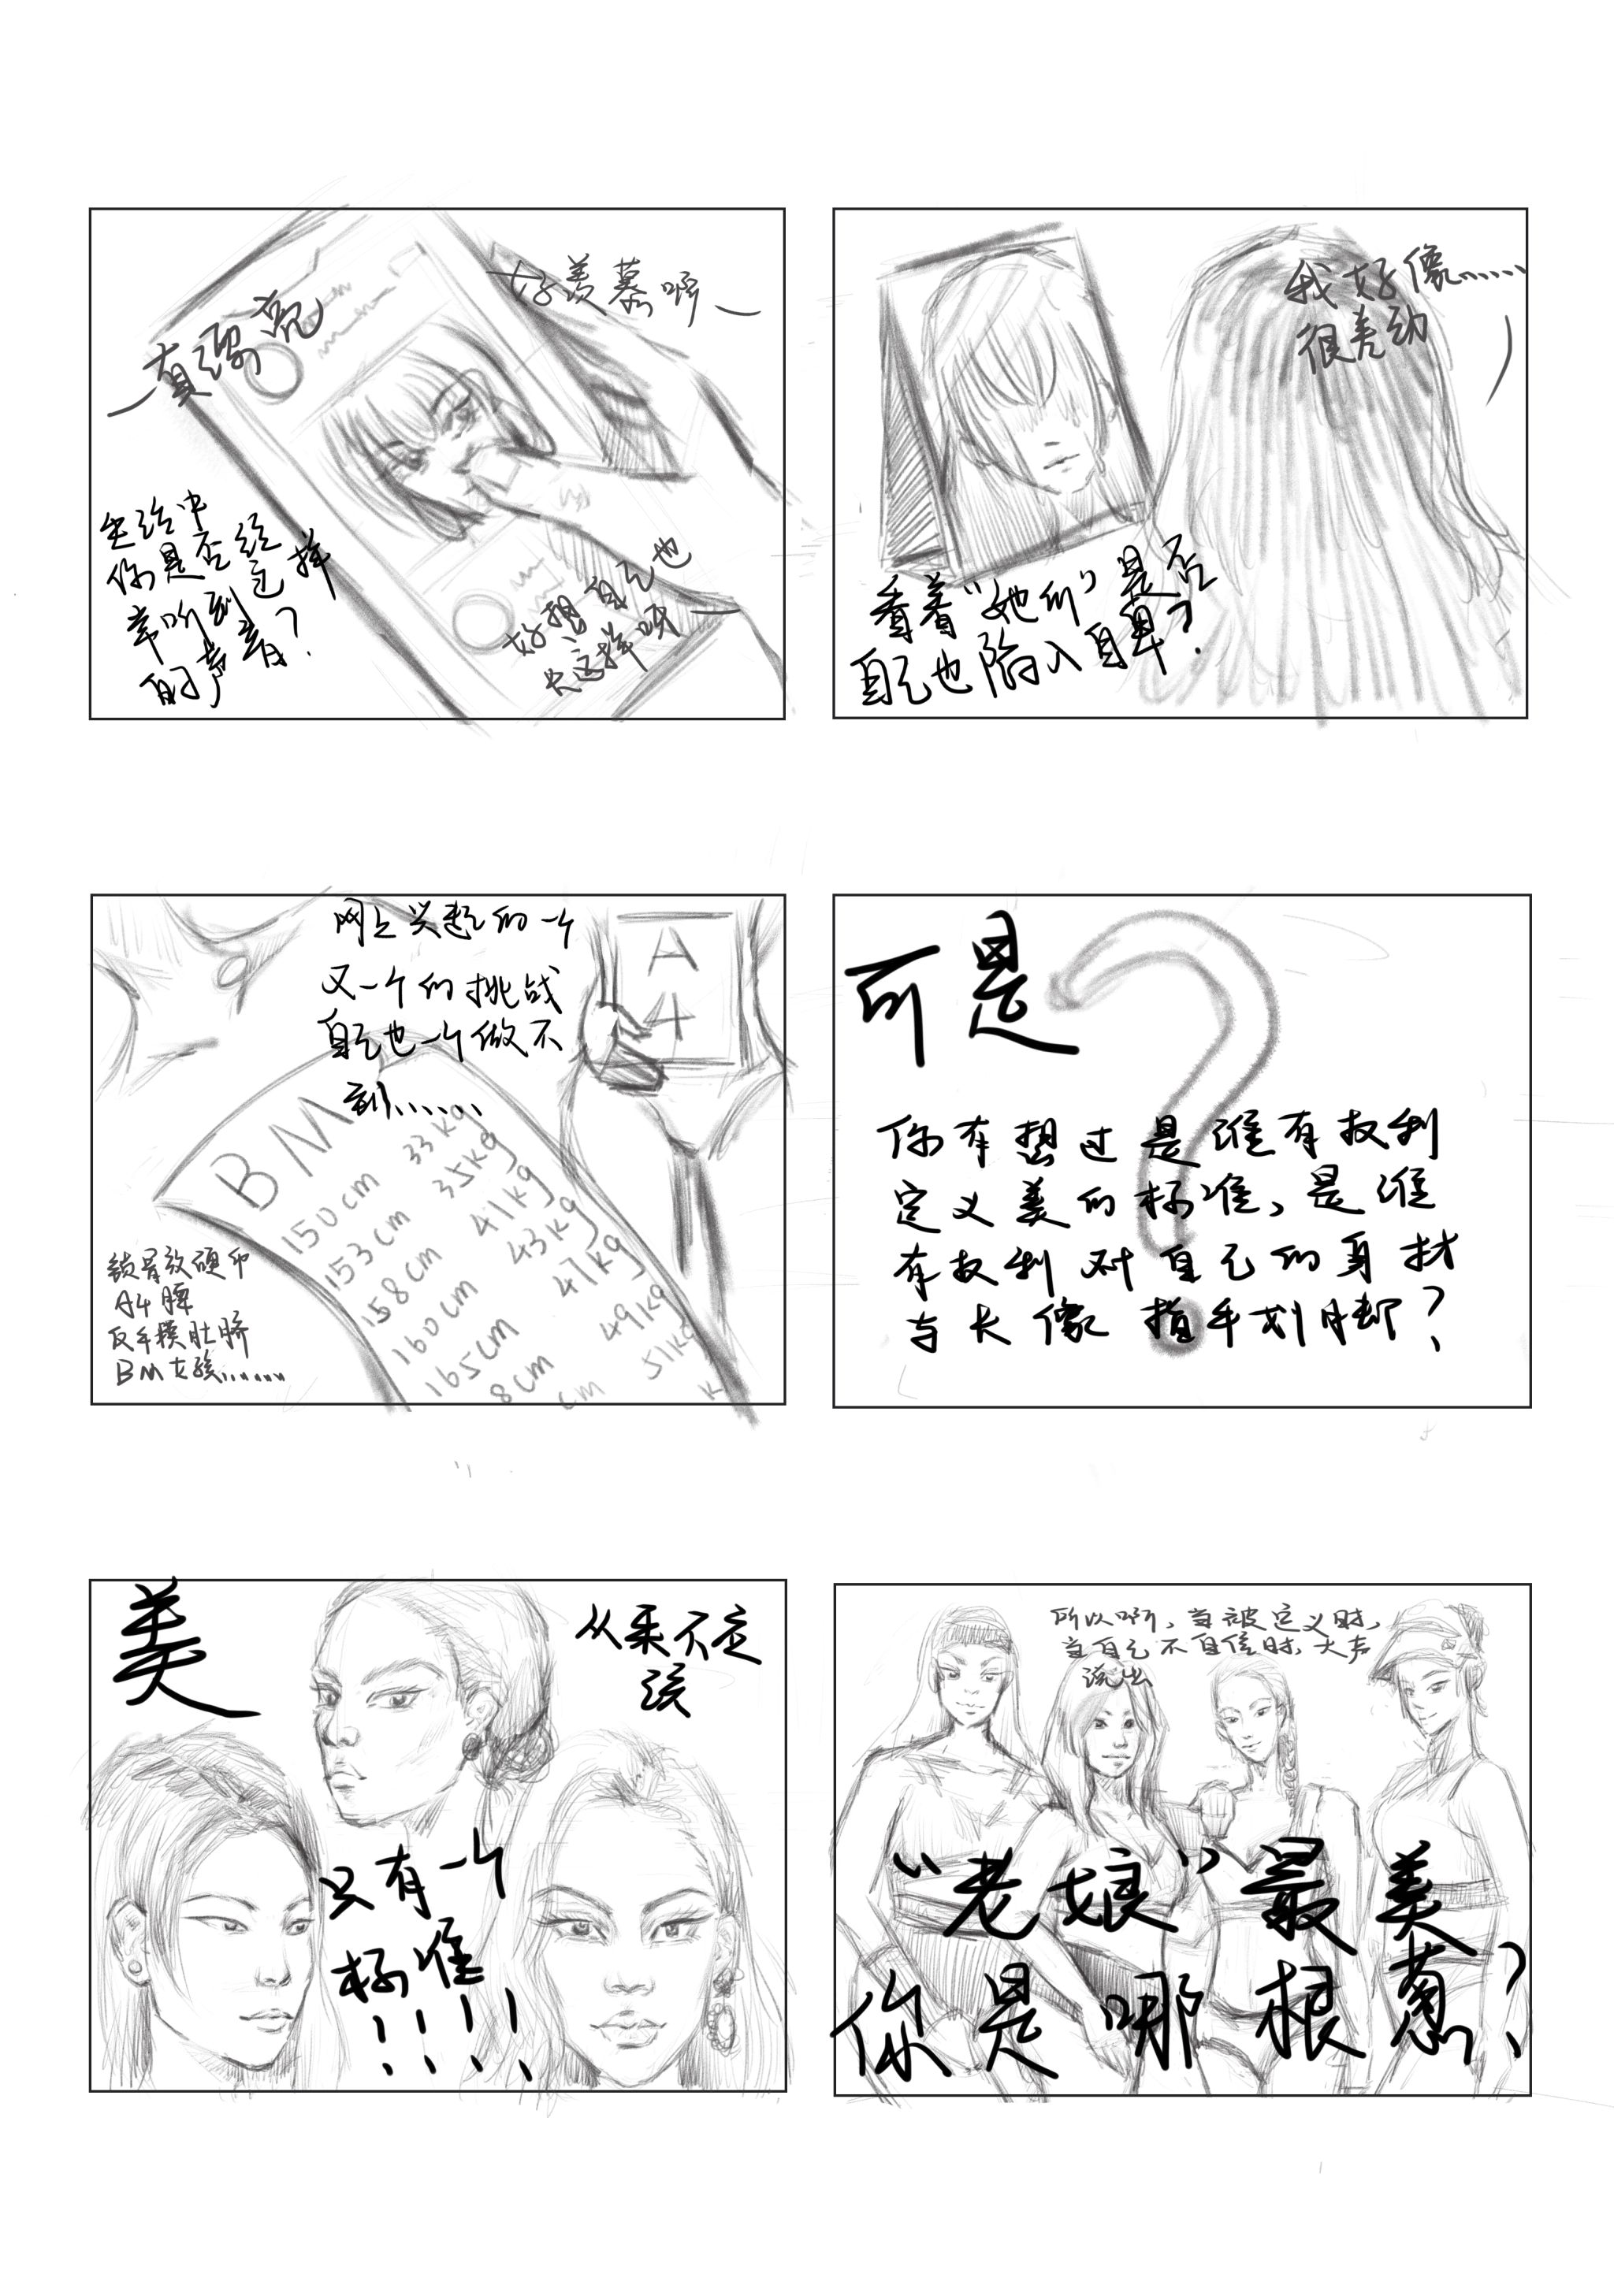 真漂亮
好羡慕啊
生活中
你是否经
常听到这样
的声音?
好想自己也
长这样呀
我好像……
很差劲
看着“她们”是否
自己也陷入自卑?
网上兴起的一个
又一个的挑战
自己也一个做不
到……
A
4
BM
150cm 33kg
153cm 35kg
158cm 41kg
160cm 43kg
165cm 47kg
8cm 49kg
cm 51kg
k
锁骨放硬币
A4腰
反手摸肚脐
BM女孩……
可是
?
你有想过是谁有权利
定义美的标准,是谁
有权利对自己的身材
与长像指手划脚?
美
从来不应
该
只有一个
标准
!!!!
所以啊,当被定义时,
当自己不自信时,大声
说出
“老娘”最美
你是哪根葱?